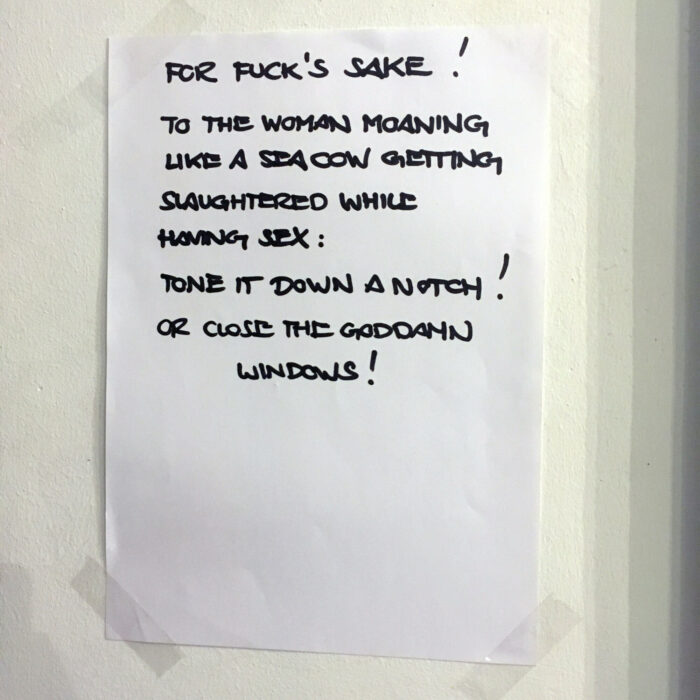 FOR FUCK'S SAKE!
TO THE WOMAN MOANING
LIKE A SEA COW GETTING
SLAUGHTERED WHILE
HAVING SEX:
TONE IT DOWN A NOTCH!
OR CLOSE THE GODDAMN
WINDOWS!